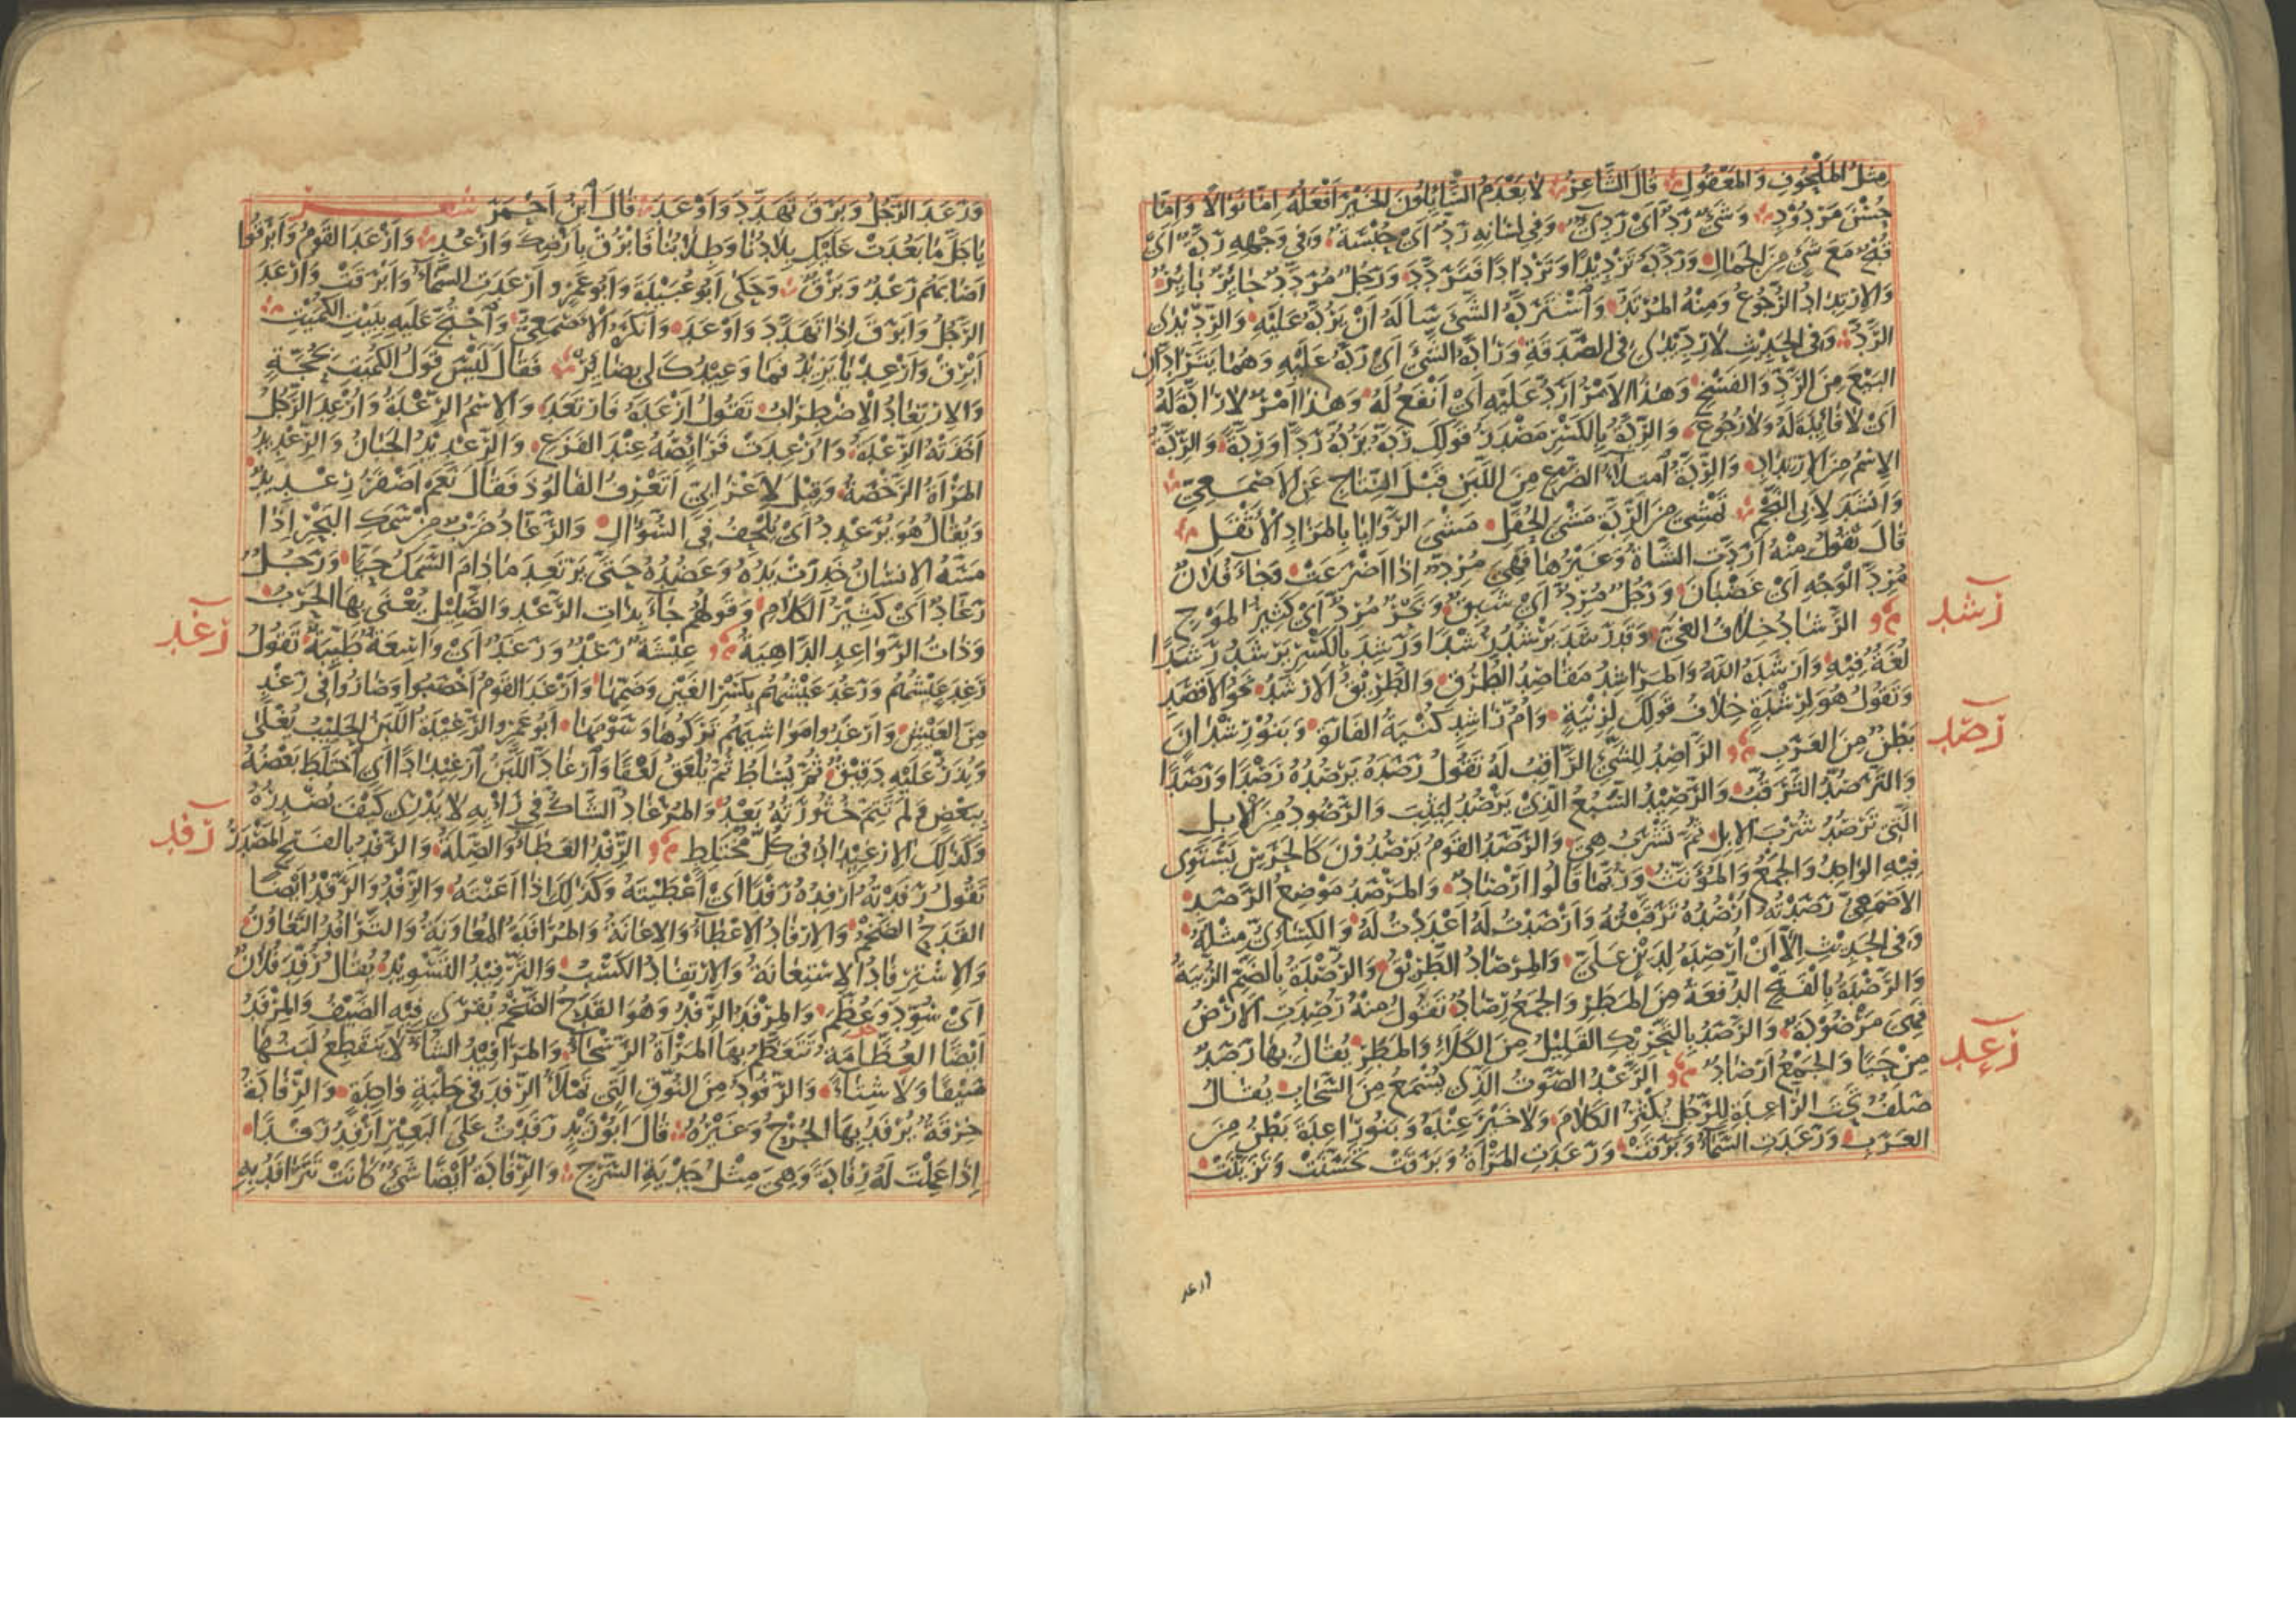 مِثْلُ المَلْحُوفِ وَالمَعْقُولِ قَالَ الشَّاعِرُ لَا يَعْدَمُ السَّائِلُونَ الخَيْرَ أَفْعَلُهُ إِمَّا نَوَالًا وَإِمَّا
حُسْنَ مَرْدُودِ وَشَيْءٌ رَدٌّ أَيْ رَدِيءٌ وَفِي لِسَانِهِ رَدَّةٌ أَيْ حُبْسَةٌ وَفِي وَجْهِهِ رَدَّةٌ أَيْ
قُبْحٌ مَعَ شَيْءٍ مِنَ الجَمَالِ وَرَدَّدَهُ تَرْدِيدًا وَتَرْدَادًا فَتَرَدَّدَ وَرَجُلٌ مُرَدَّدٌ حَائِرٌ بَائِرٌ
وَالِارْتِدَادُ الرُّجُوعُ وَمِنْهُ المُرْتَدُّ وَاسْتَرَدَّهُ الشَّيْءَ سَأَلَهُ أَنْ يَرُدَّهُ عَلَيْهِ وَالرِّدِّيدَى
الرَّدُّ وَفِي الحَدِيثِ لَا رِدِّيدَى فِي الصَّدَقَةِ وَرَادَّهُ الشَّيْءَ أَيْ رَدَّهُ عَلَيْهِ وَهُمَا يَتَرَادَّانِ
البَيْعَ مِنَ الرَّدِّ وَالفَسْخِ وَهَذَا الأَمْرُ أَرَدُّ عَلَيْهِ أَيْ أَنْفَعُ لَهُ وَهَذَا أَمْرٌ لَا رَادَّةَ لَهُ
أَيْ لَا فَائِدَةَ لَهُ وَلَا رُجُوعَ وَالرِّدَّةُ بِالكَسْرِ مَصْدَرُ قَوْلِكَ رَدَّهُ يَرُدُّهُ رَدًّا وَرِدَّةً وَالرِّدَّةُ
الِاسْمُ مِنَ الِارْتِدَادِ وَالرِّدَّةُ امْتِلَاءُ الضَّرْعِ مِنَ اللَّبَنِ قَبْلَ النِّتَاجِ عَنِ الأَصْمَعِيِّ
وَأَنْشَدَ لِأَبِي النَّجْمِ تَمْشِي مِنَ الرِّدَّةِ مَشْيَ الحُفَّلِ مَشْيَ الرَّوَايَا بِالمَزَادِ الأَثْقَلِ
قَالَ تَقُولُ مِنْهُ أَرَدَّتِ الشَّاةُ وَغَيْرُهَا فَهِيَ مُرِدٌّ إِذَا أَضْرَعَتْ وَجَاءَ فُلَانٌ
مُرِدَّ الوَجْهِ أَيْ غَضْبَانَ وَرَجُلٌ مُرِدٌّ أَيْ شَبِقٌ وَبَحْرٌ مُرِدٌّ أَيْ كَثِيرُ المَوْجِ
رشد
الرَّشَادُ خِلَافُ الغَيِّ وَقَدْ رَشَدَ يَرْشُدُ رُشْدًا وَرَشِدَ بِالكَسْرِ يَرْشَدُ رَشَدًا
لُغَةٌ فِيهِ وَأَرْشَدَهُ اللَّهُ وَالمَرَاشِدُ مَقَاصِدُ الطُّرُقِ وَالطَّرِيقُ الأَرْشَدُ نَحْوُ الأَقْصَدِ
وَتَقُولُ هُوَ لِرِشْدَةٍ خِلَافُ قَوْلِكَ لِزِنْيَةٍ وَأُمُّ رَاشِدٍ كُنْيَةُ الفَارَةِ وَبَنُو رَشْدَانَ
رصد
بَطْنٌ مِنَ العَرَبِ الرَّاصِدُ لِلشَّيْءِ الرَّاقِبُ لَهُ تَقُولُ رَصَدَهُ يَرْصُدُهُ رَصْدًا وَرَصَدًا
وَالتَّرَصُّدُ التَّرَقُّبُ وَالرَّصِيدُ السَّبُعُ الَّذِي يَرْصُدُ لِيَثِبَ وَالرَّصُودُ مِنَ الإِبِلِ
الَّتِي تَرْصُدُ شُرْبَ الإِبِلِ ثُمَّ تَشْرَبُ هِيَ وَالرَّصَدُ القَوْمُ يَرْصُدُونَ كَالحَرَسِ يَسْتَوِي
فِيهِ الوَاحِدُ وَالجَمْعُ وَالمُؤَنَّثُ وَرُبَّمَا قَالُوا أَرْصَادٌ وَالمَرْصَدُ مَوْضِعُ الرَّصَدِ
الأَصْمَعِيُّ رَصَدْتُهُ أَرْصُدُهُ تَرَقَّبْتُهُ وَأَرْصَدْتُ لَهُ أَعْدَدْتُ لَهُ وَالكِسَائِيُّ مِثْلَهُ
وَفِي الحَدِيثِ إِلَّا أَنْ أُرْصِدَهُ لِدَيْنٍ عَلَيَّ وَالمِرْصَادُ الطَّرِيقُ وَالرُّصْدَةُ بِالضَّمِّ الزُّبْيَةُ
وَالرَّصْدَةُ بِالفَتْحِ الدَّفْعَةُ مِنَ المَطَرِ وَالجَمْعُ رِصَادٌ تَقُولُ مِنْهُ رُصِدَتِ الأَرْضُ
فَهِيَ مَرْصُودَةٌ وَالرَّصَدُ بِالتَّحْرِيكِ القَلِيلُ مِنَ الكَلَأِ وَالمَطَرِ يُقَالُ بِهَا رَصَدٌ
رعد
مِنْ حَيًا وَالجَمْعُ أَرْصَادٌ الرَّعْدُ الصَّوْتُ الَّذِي يُسْمَعُ مِنَ السَّحَابِ يُقَالُ
صَلَفٌ تَحْتَ الرَّاعِدَةِ لِلرَّجُلِ يُكْثِرُ الكَلَامَ وَلَا خَيْرَ عِنْدَهُ وَبَنُو رَاعِدَةَ بَطْنٌ مِنَ
العَرَبِ وَرَعَدَتِ السَّمَاءُ وَبَرَقَتْ وَرَعَدَتِ المَرْأَةُ وَبَرَقَتْ تَحَسَّنَتْ وَتَزَيَّنَتْ
وَرَعَدَ الرَّجُلُ وَبَرَقَ تَهَدَّدَ وَأَوْعَدَ قَالَ ابْنُ أَحْمَرَ شعر
يَا جَلَّ مَا بَعُدَتْ عَلَيْكَ بِلَادُنَا وَطِلَابُنَا فَابْرُقْ بِأَرْضِكَ وَارْعُدِ وَأَرْعَدَ القَوْمُ وَأَبْرَقُوا
أَصَابَهُمْ رَعْدٌ وَبَرْقٌ وَحَكَى أَبُو عُبَيْدَةَ وَأَبُو عَمْرٍو أَرْعَدَتِ السَّمَاءُ وَأَبْرَقَتْ وَأَرْعَدَ
الرَّجُلُ وَأَبْرَقَ إِذَا تَهَدَّدَ وَأَوْعَدَ وَأَنْكَرَهُ الأَصْمَعِيُّ وَاحْتُجَّ عَلَيْهِ بِبَيْتِ الكُمَيْتِ
أَبْرِقْ وَأَرْعِدْ يَا يَزِيدُ فَمَا وَعِيدُكَ لِي بِضَائِرْ فَقَالَ لَيْسَ قَوْلُ الكُمَيْتِ بِحُجَّةٍ
وَالِارْتِعَادُ الِاضْطِرَابُ تَقُولُ أَرْعَدَهُ فَارْتَعَدَ وَالِاسْمُ الرِّعْدَةُ وَأُرْعِدَ الرَّجُلُ
أَخَذَتْهُ الرِّعْدَةُ وَأُرْعِدَتْ فَرَائِصُهُ عِنْدَ الفَزَعِ وَالرِّعْدِيدُ الجَبَانُ وَالرِّعْدِيدُ
المَرْأَةُ الرَّخْصَةُ وَقِيلَ لِأَعْرَابِيٍّ أَتَعْرِفُ الفَالُوذَ فَقَالَ نَعَمْ أَصْفَرُ رِعْدِيدٌ
وَيُقَالُ هُوَ يُرَعْدِدُ أَيْ يُلْحِفُ فِي السُّؤَالِ وَالرَّعَّادُ ضَرْبٌ مِنْ سَمَكِ البَحْرِ إِذَا
مَسَّهُ الإِنْسَانُ خَدِرَتْ يَدُهُ وَعَضُدُهُ حَتَّى يَرْتَعِدَ مَا دَامَ السَّمَكُ حَيًّا وَرَجُلٌ
رَعَّادٌ أَيْ كَثِيرُ الكَلَامِ وَقَوْلُهُمْ جَاءَ بِذَاتِ الرَّعْدِ وَالصَّلِيلِ يُعْنَى بِهَا الحَرْبُ
رغد
وَذَاتُ الرَّوَاعِدِ الدَّاهِيَةُ عِيشَةٌ رَغْدٌ وَرَغَدٌ أَيْ وَاسِعَةٌ طَيِّبَةٌ تَقُولُ
رَغِدَ عَيْشُهُمْ وَرَغُدَ عَيْشُهُمْ بِكَسْرِ الغَيْنِ وَضَمِّهَا وَأَرْغَدَ القَوْمُ أَخْصَبُوا وَصَارُوا فِي رَغَدٍ
مِنَ العَيْشِ وَأَرْغَدُوا مَوَاشِيَهُمْ تَرَكُوهَا وَسَوْمَهَا أَبُو عَمْرٍو الرَّغِيدَةُ اللَّبَنُ الحَلِيبُ يُغْلَى
وَيُذَرُّ عَلَيْهِ دَقِيقٌ ثُمَّ يُسَاطُ ثُمَّ يُلْعَقُ لَعْقًا وَارْغَادَّ اللَّبَنُ ارْغِيدَادًا أَيِ اخْتَلَطَ بَعْضُهُ
بِبَعْضٍ وَلَمْ تَتِمَّ خُثُورَتُهُ بَعْدُ وَالمُرْغَادُّ الشَّاكُّ فِي رَأْيِهِ لَا يَدْرِي كَيْفَ يُصْدِرُهُ
رفد
وَكَذَلِكَ الِارْغِيدَادُ فِي كُلِّ مُخْتَلِطٍ الرِّفْدُ العَطَاءُ وَالصِّلَةُ وَالرَّفْدُ بِالفَتْحِ المَصْدَرُ
تَقُولُ رَفَدْتُهُ أَرْفِدُهُ رَفْدًا أَيْ أَعْطَيْتَهُ وَكَذَلِكَ إِذَا أَعَنْتَهُ وَالرِّفْدُ وَالرَّفْدُ أَيْضًا
القَدَحُ الضَّخْمُ وَالإِرْفَادُ الإِعْطَاءُ وَالإِعَانَةُ وَالمُرَافَدَةُ المُعَاوَنَةُ وَالتَّرَافُدُ التَّعَاوُنُ
وَالِاسْتِرْفَادُ الِاسْتِعَانَةُ وَالِارْتِفَادُ الكَسْبُ وَالتَّرْفِيدُ التَّسْوِيدُ يُقَالُ رُفِّدَ فُلَانٌ
أَيْ سُوِّدَ وَعُظِّمَ وَالمِرْفَدُ الرِّفْدُ وَهُوَ القَدَحُ الضَّخْمُ يُقْرَى فِيهِ الضَّيْفُ وَالمِرْفَدُ
أَيْضًا العُظَّامَةُ تَتَعَظَّمُ بِهَا المَرْأَةُ الرَّسْحَاءُ وَالمَرَافِيدُ الشَّاءُ لَا يَنْقَطِعُ لَبَنُهَا
صَيْفًا وَلَا شِتَاءً وَالرَّفُودُ مِنَ النُّوقِ الَّتِي تَمْلَأُ الرِّفْدَ فِي حَلْبَةٍ وَاحِدَةٍ وَالرِّفَادَةُ
خِرْقَةٌ يُرْفَدُ بِهَا الجُرْحُ وَغَيْرُهُ قَالَ أَبُو زَيْدٍ رَفَدْتُ عَلَى البَعِيرِ أَرْفِدُ رَفْدًا
إِذَا عَمِلْتَ لَهُ رِفَادَةً وَهِيَ مِثْلُ جَدْيَةِ السَّرْجِ وَالرِّفَادَةُ أَيْضًا شَيْءٌ كَانَتْ تَتَرَافَدُ بِهِ